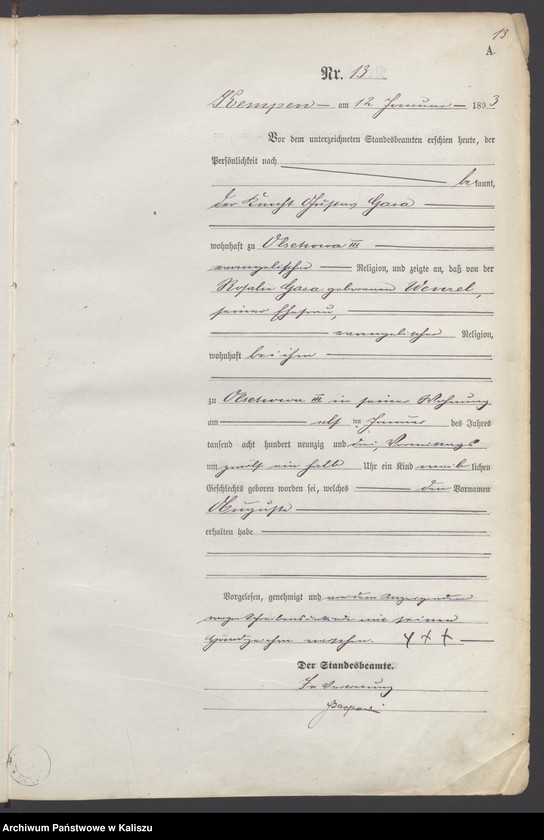 13
A.
Nr. 13
Kempen am 12 Januar 1893
Vor dem unterzeichneten Standesbeamten erschien heute, der
Persönlichkeit nach
bekannt,
der Knecht Gustav Gasa
wohnhaft zu Olschowa III
evangelischer Religion, und zeigte an, daß von der
Rosalie Gasa geborenen Wenzel,
seiner Ehefrau,
evangelischer Religion,
wohnhaft bei ihm
zu Olschowa III in seiner Wohnung
am elf ten Januar des Jahres
tausend acht hundert neunzig und drei, Vormittags
um zwölf ein halb Uhr ein Kind weiblichen
Geschlechts geboren worden sei, welches den Vornamen
Auguste
erhalten habe
Vorgelesen, genehmigt und von dem Anzeigenden
wegen Schreibensunkunde mit seinen
Handzeichen versehen. +++
Der Standesbeamte.
In Vertretung
Archiwum Państwowe w Kaliszu